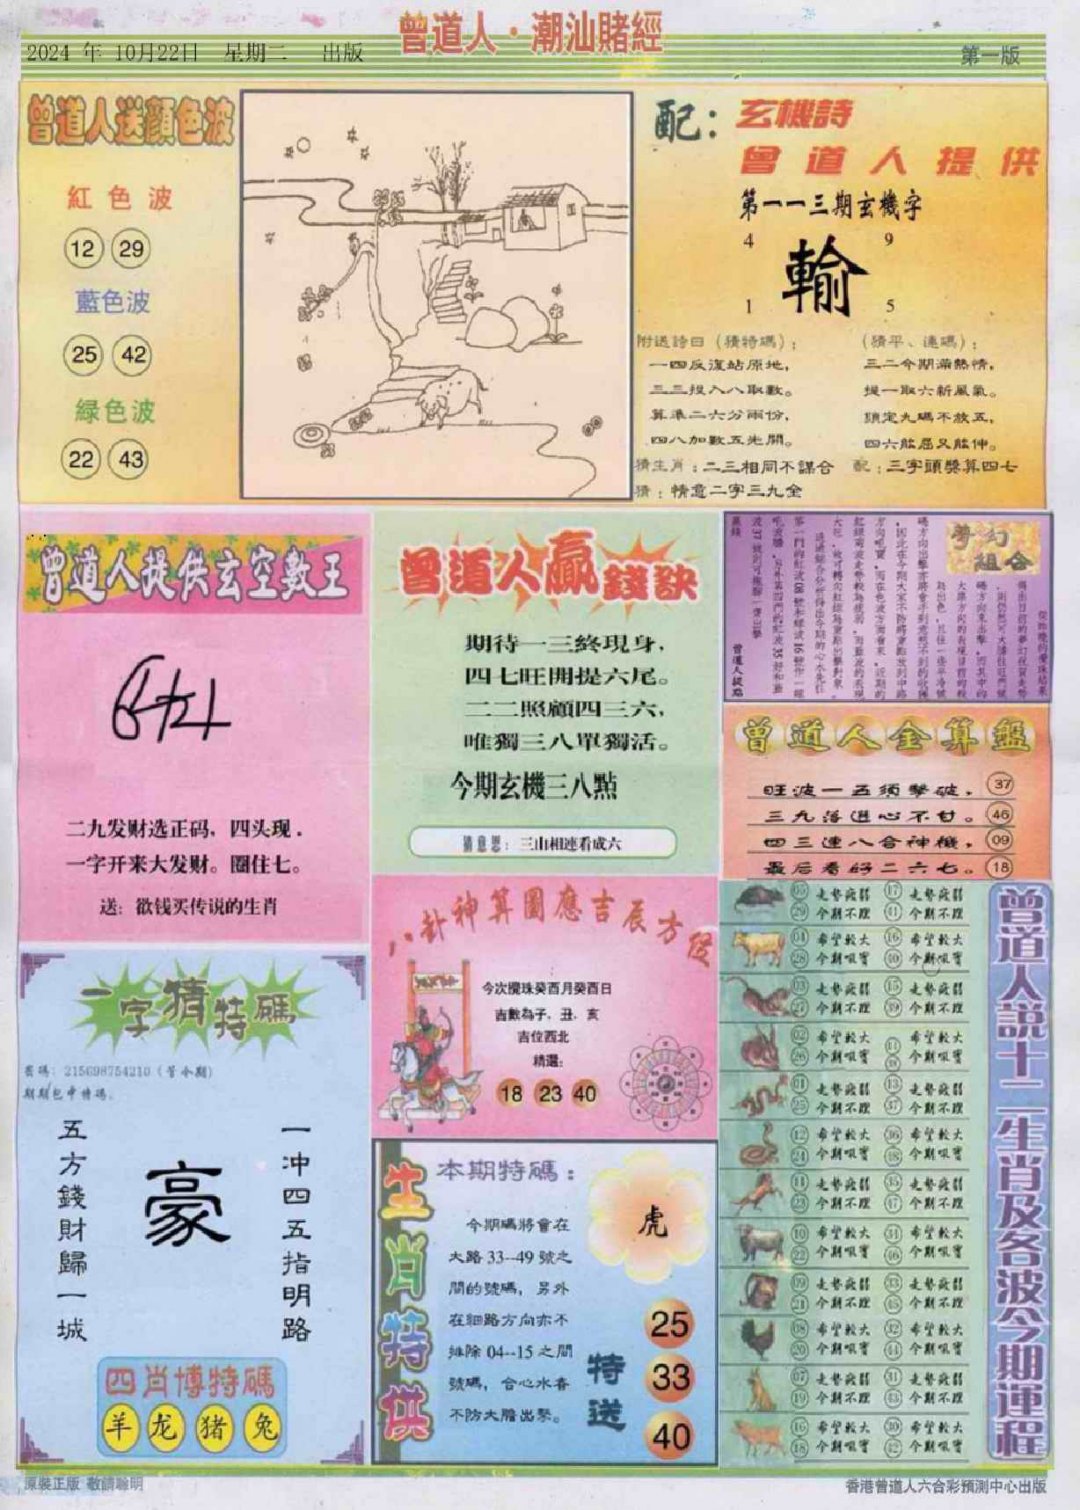 曾道人·潮汕賭經
2024 年 10月22日 星期二 出版
第一版
曾道人送顏色波
紅色波
12 29
藍色波
25 42
緑色波
22 43
配：玄機詩
曾道人提供
第一一三期玄機字
4 9
輸
1 5
附送詩曰（猜特碼）：
一四反復站原地，
三三投入八取數。
算準二六分兩份，
四八加數五先開。
（猜平、連碼）：
三二今期滿熱情，
提一取六新風氣。
鎖定九碼不放五，
四六能屈又能伸。
猜生肖：二三相同不謀合 配：三字頭獎算四七
猜：情意二字三九全
曾道人提供玄空數王
二九发财选正码，四头现．
一字开来大发财。圈住七。
送：欲钱买传说的生肖
曾道人贏錢訣
期待一三終現身，
四七旺開提六尾。
二二照顧四三六，
唯獨三八單獨活。
今期玄機三八點
猜意思：三山相連看成六
夢幻組合
曾道人提點
曾道人金算盤
旺波一五須擊破， 37
三九落選心不甘。 46
四三連八合神機， 09
最后看好二六七。 18
一字猜特碼
舊碼：215698754210（管今期）
期期包中特碼。
一冲四五指明路
豪
五方錢財歸一城
四肖博特碼
羊 龙 猪 兔
八卦神算圖應吉辰方位
今次攪珠癸酉月癸酉日
吉數為子、丑、亥
吉位西北
精選：
18 23 40
生肖特供
本期特碼：
今期碼將會在
大路33--49號之
間的號碼，另外
在細路方向亦不
排除04--15之間
號碼，合心水者
不防大膽出擊。
虎
特送
25
33
40
曾道人説十二生肖及各波今期運程
05 走勢疲弱 17 走勢疲弱
29 今期不理 41 今期不理
04 希望較大 16 希望較大
28 今期呃寶 40 今期呃寶
03 走勢疲弱 15 走勢疲弱
27 今期不理 39 今期不理
02 希望較大 14 希望較大
26 今期呃寶 38 今期呃寶
01 走勢疲弱 13 走勢疲弱
25 今期不理 37 今期不理
12 希望較大 36 希望較大
24 今期呃寶 48 今期呃寶
11 走勢疲弱 35 走勢疲弱
23 今期不理 47 今期不理
10 希望較大 34 希望較大
22 今期呃寶 46 今期呃寶
09 走勢疲弱 33 走勢疲弱
21 今期不理 45 今期不理
08 希望較大 32 希望較大
20 今期呃寶 44 今期呃寶
07 走勢疲弱 31 走勢疲弱
19 今期不理 43 今期不理
希望較大 30 希望較大
18 今期呃寶 42 今期呃寶
原裝正版 敬請聡明
香港曾道人六合彩預測中心出版